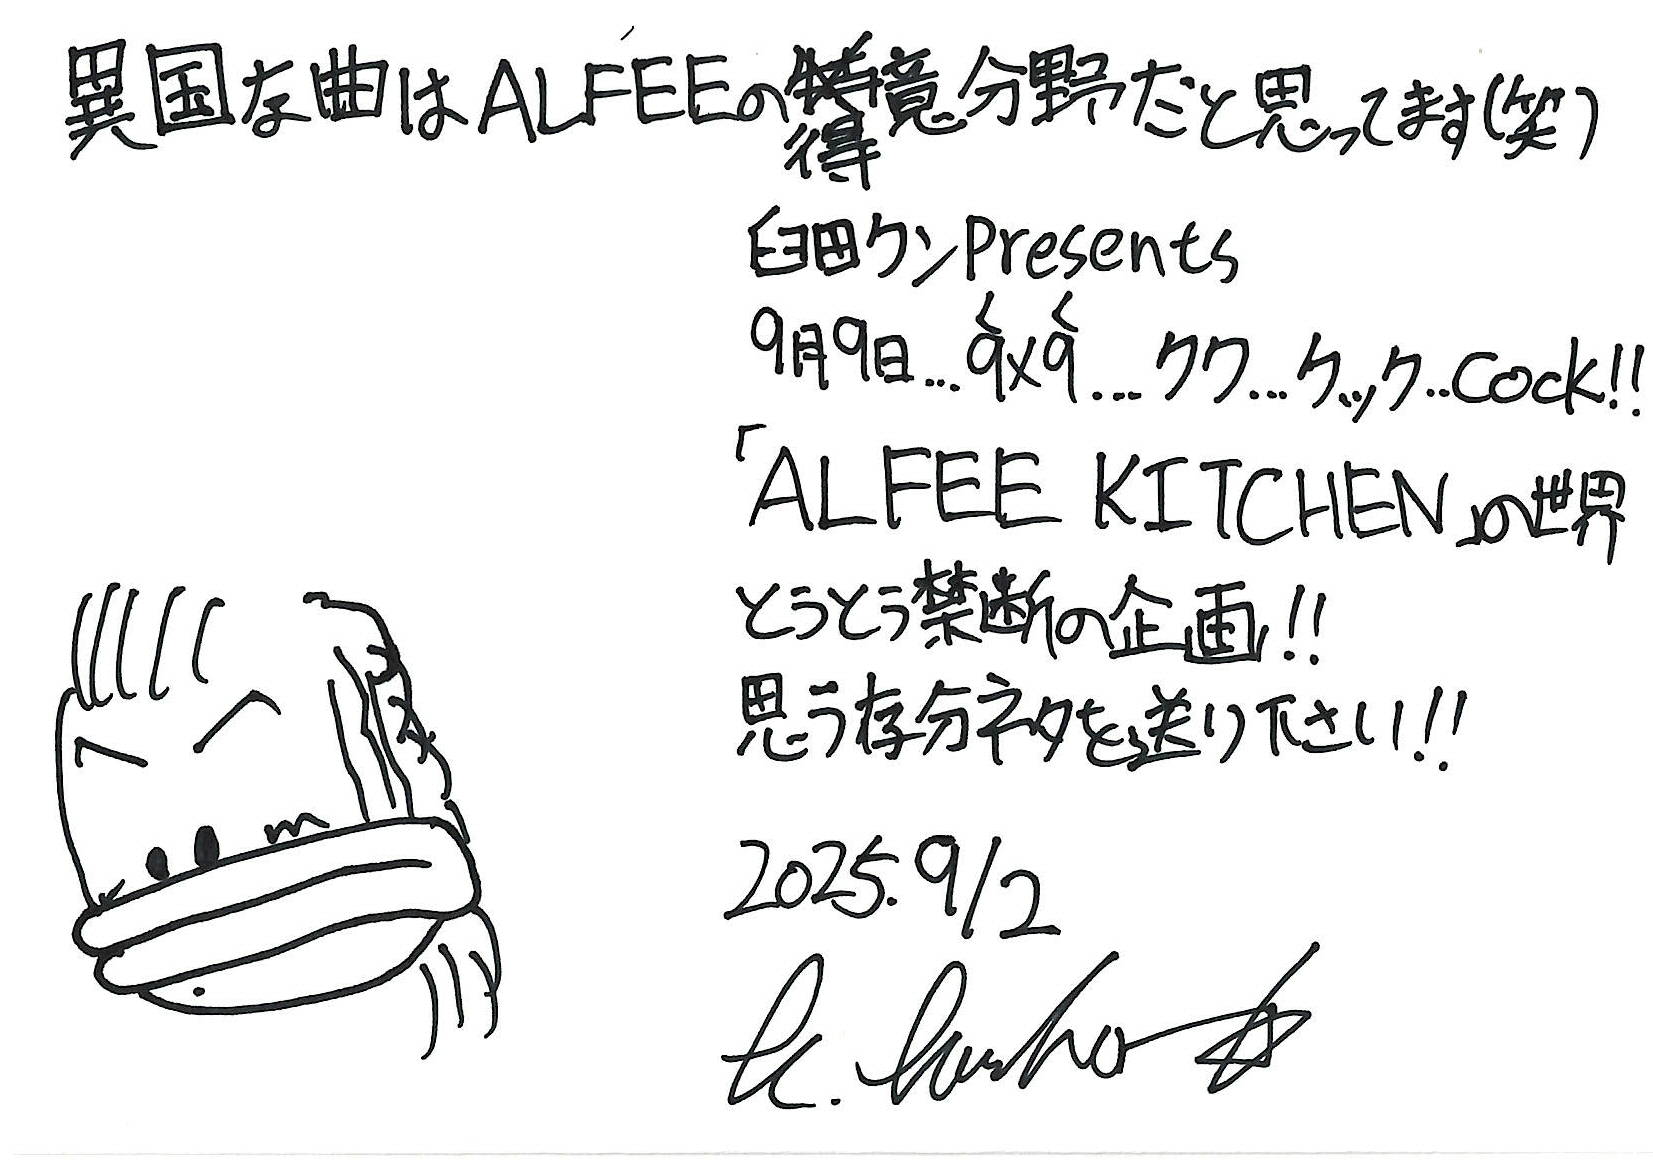 異国な曲はALFEEの得意分野だと思ってます(笑)
臼田クンPresents
9月9日...9×9...クク...クック..Cock!!
くく
「ALFEE KITCHEN」の世界
とうとう禁断の企画!!
思う存分ネタを送り下さい!!
2025.9/2